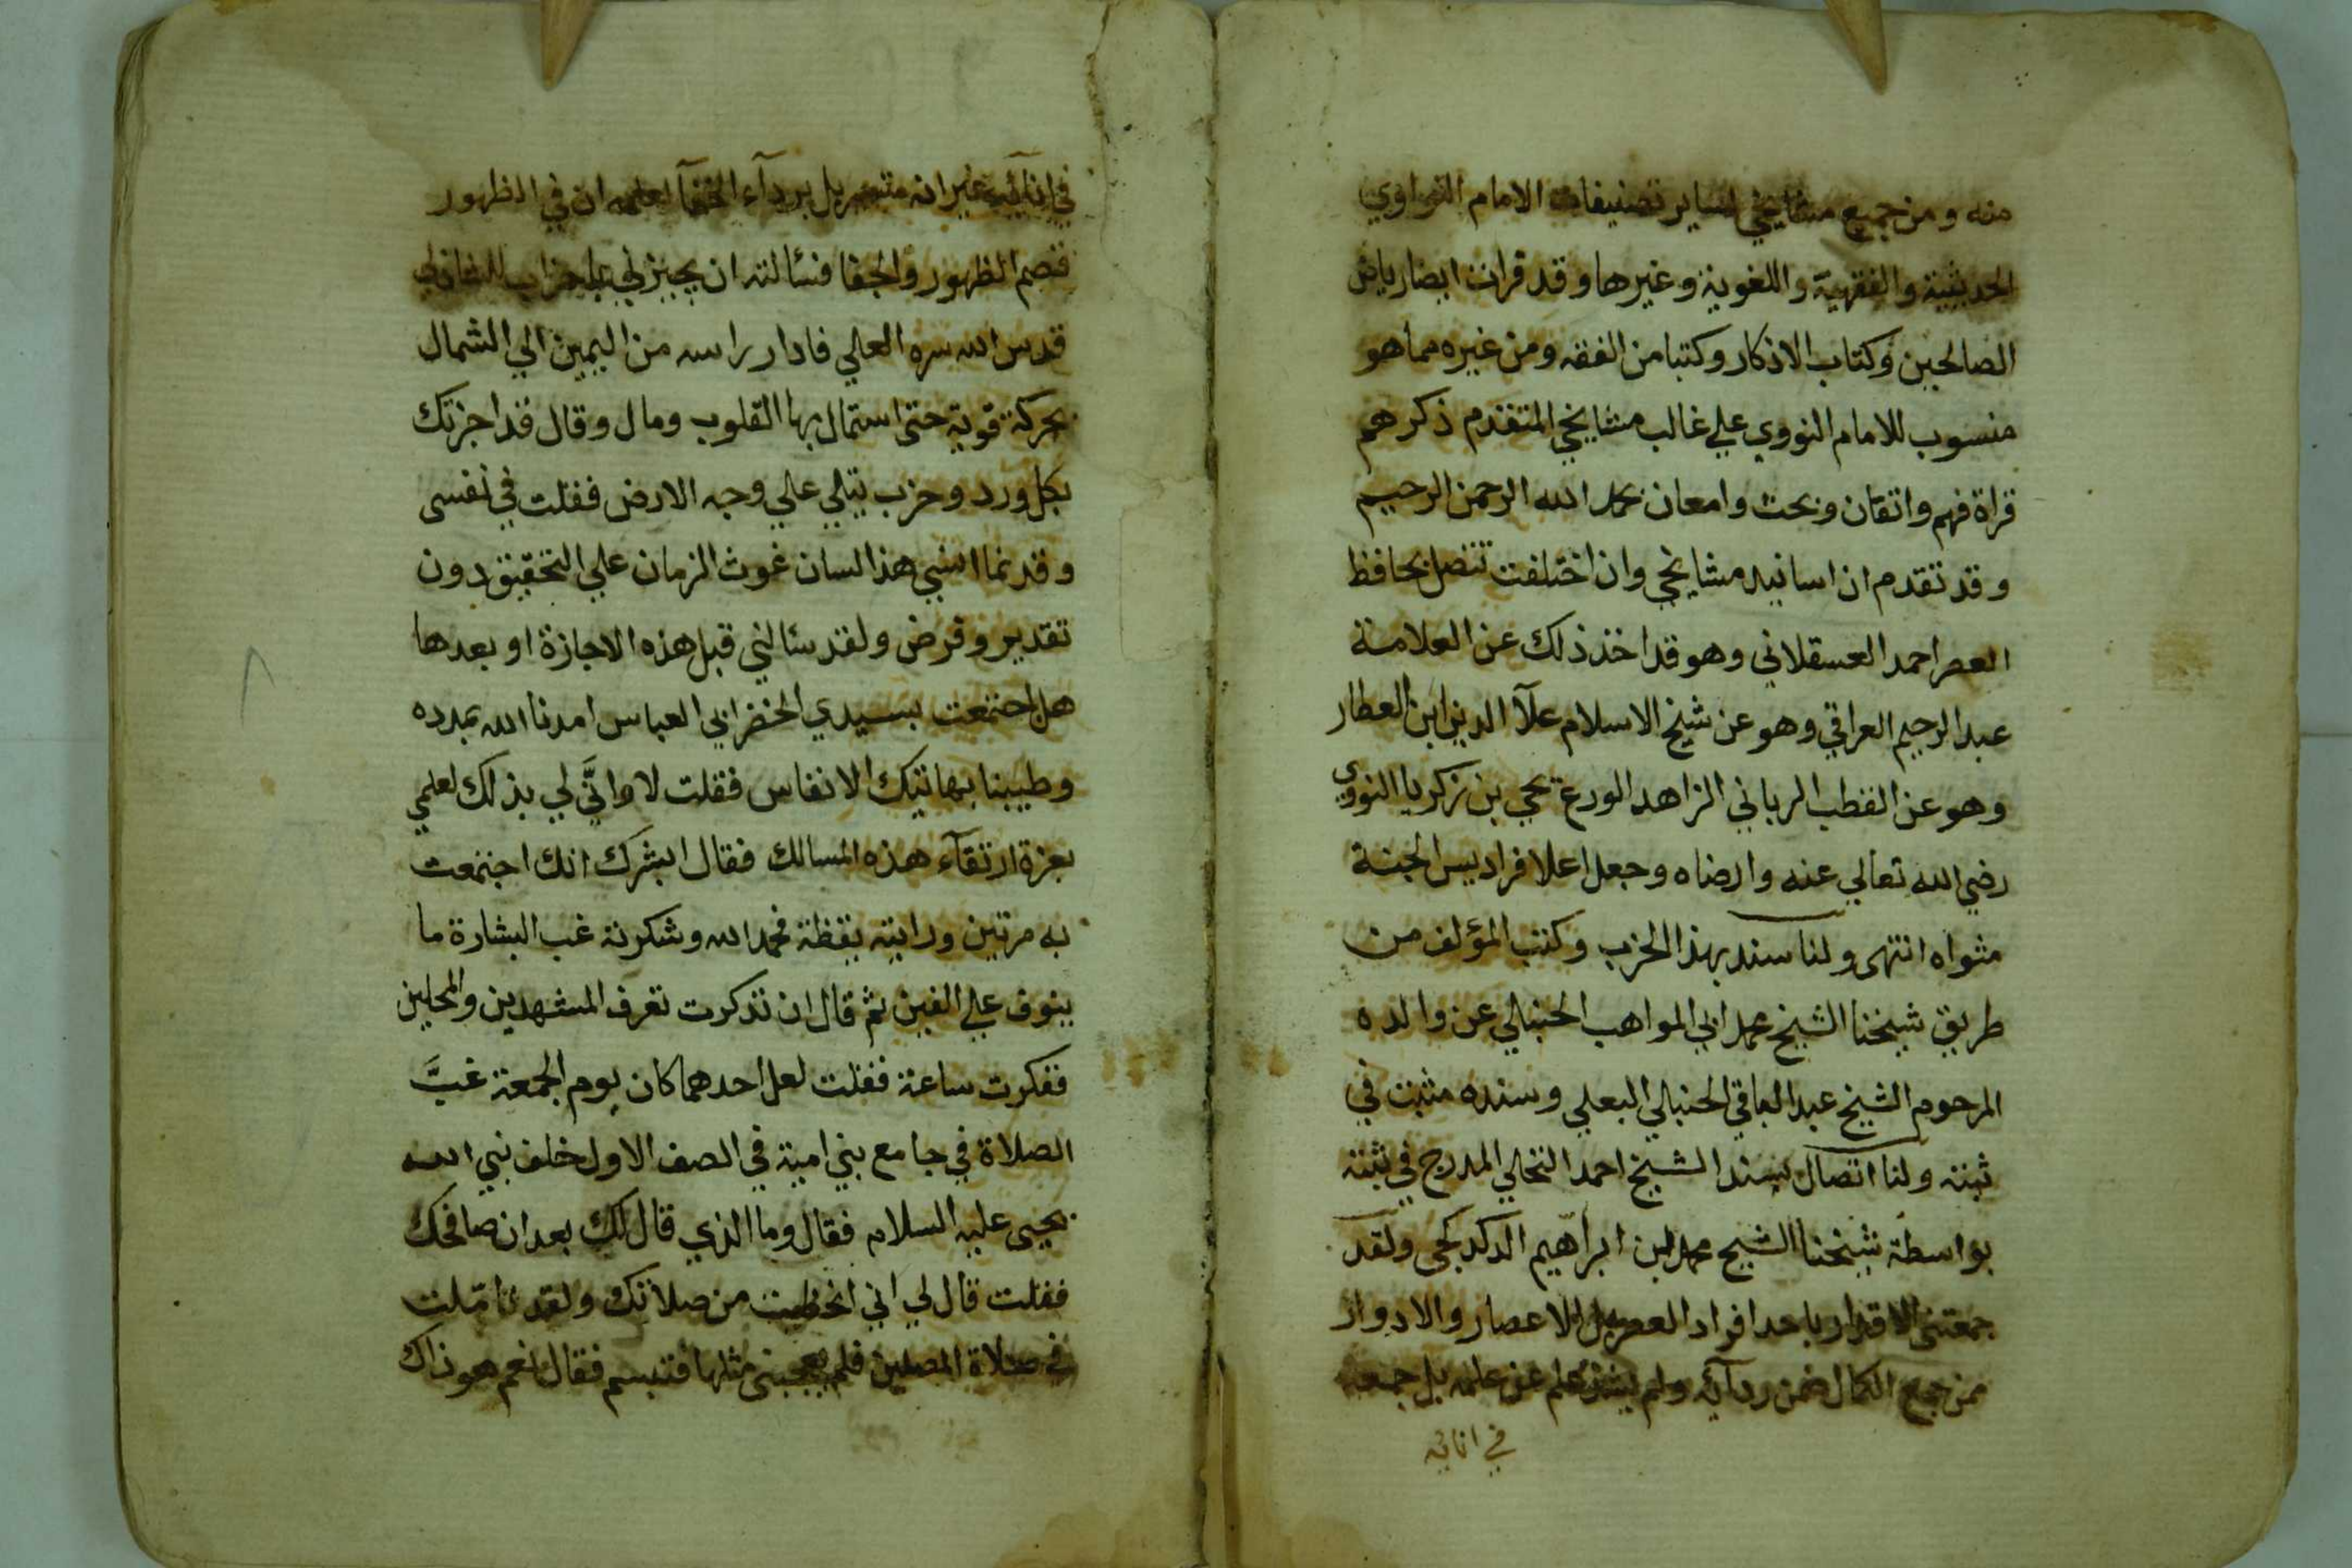 منه ومن جميع مشايخي لساير تصنيفات الامام النواوي
الحديثية والفقهية واللغوية وغيرها وقد قرات ايضا رياض
الصالحين وكتاب الاذكار وكتبا من الفقه ومن غيره مما هو
منسوب للامام النووي علي غالب مشايخي المتقدم ذكرهم
قراة فهم واتقان وبحث وامعان بحمد الله الرحمن الرحيم
وقد تقدم ان اسانيد مشايخي وان اختلفت تتصل بحافظ
العصر احمد العسقلاني وهو قد اخذ ذلك عن العلامة
عبد الرحيم العراقي وهو عن شيخ الاسلام علآ الدين ابن العطار
وهو عن القطب الرباني الزاهد الورع يحي بن زكريا النووي
رضي الله تعالي عنه وارضاه وجعل اعلا فراديس الجنة
مثواه انتهى ولنا سند بهذا الحزب وكتب المؤلف من
طريق شيخنا الشيخ محمد ابي المواهب الحنبالي عن والده
المرحوم الشيخ عبد الباقي الحنبالي البعلي وسنده مثبت في
ثبته ولنا اتصال بسند الشيخ احمد النخلي المدرج في ثبته
بواسطة شيخنا الشيخ محمد بن ابراهيم الدكدكجى ولقد
جمعتني الاقدار باحد افراد العصر بل الاعصار والادوار
ممن جمع الكمال ضمن ردآئه ولم علم عن علمه بل جمعه
في انائه
في انآئه غير انه متسربل بردآء الخفآ لعلمه ان في الظهور
قصم الظهور والجفا فسالته ان يجيز لي باحزاب الشاذلي
قدس الله سره العلي فادار راسه من اليمين الي الشمال
بحركة قوية حتى استمال بها القلوب ومال وقال قد اجزتك
بكل ورد وحزب يتلي علي وجه الارض فقلت في نفسى
وقد نما انسي هذا لسان غوث الزمان علي التحقيق دون
تقدير وفرض ولقد سئالني قبل هذه الاجازة او بعدها
هل اجتمعت بسيدي الخضر ابي العباس امدنا الله بمدده
وطيبنا بهاتيك الانفاس فقلت لا وانَّي لي بذلك لعلمي
بعزة ارتقآء هذه المسالك فقال ابشرك انك اجتمعت
به مرتين ورايته يقظة فحمد الله وشكرته غب البشارة ما
ينوف علي الفين ثم قال ان تذكرت تعرف المشهدين والمحلين
ففكرت ساعة فقلت لعل احدهما كان يوم الجمعة غبَّ
الصلاة في جامع بني امية في الصف الاول خلف نبي الله
يحيى عليه السلام فقال وما الذي قال لك بعد ان صافحك
فقلت قال لي اني من صلاتك ولقد تاملت
في صلاة المصلين فلم يعجبنى مثلها فتبسم فقال نعم هو ذاك